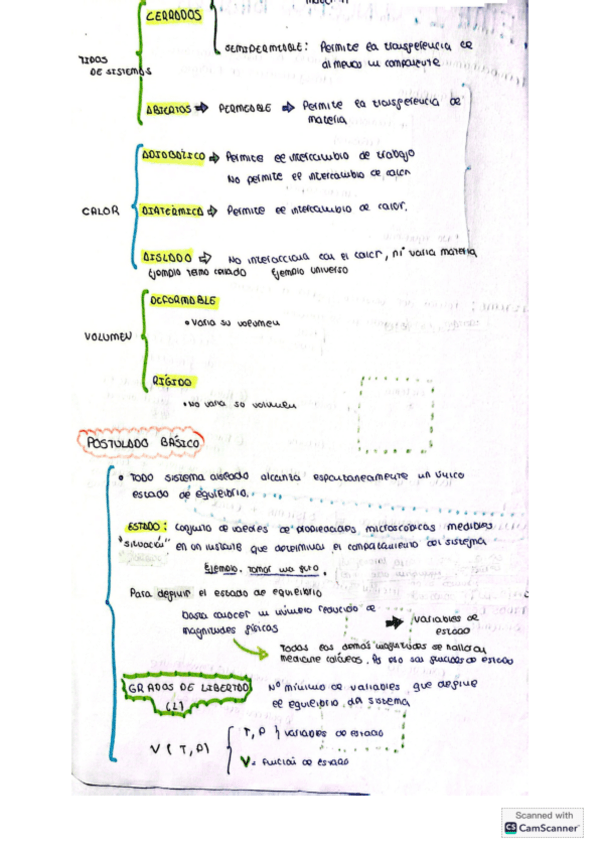 CERRADOS
SEMIPERMEABLE: Permite la transferencia de
al menos un componente
TIPOS
DE SISTEMAS
ABIERTOS → PERMEABLE → Permite la transferencia de
materia
CALOR
ADIABÁTICO → Permite el intercambio de trabajo
No permite el intercambio de calor
DIATÉRMICO → Permite el intercambio de calor.
AISLADO → No interacciona con el calor, ni varia materia
Ejemplo termo cerrado Ejemplo universo
VOLUMEN
DEFORMABLE
• Varia su volumen
RÍGIDO
• No varia su volumen
POSTULADO BÁSICO
• TODO sistema aislado alcanza espontaneamente un único
estado de equilibrio.
ESTADO: Conjunto de valores de propiedades microscópicas medibles
"situación" en un instante que determinan el comportamiento del sistema
Ejemplo. Tomar una foto.
Para definir el estado de equilibrio
basta conocer un número reducido de
magnitudes físicas
→ variables de
estado
Todas las demas magnitudes se hallarán
mediante cálculos. Por eso son funciones de estado
GRADOS DE LIBERTAD
(L)
Nº mínimo de variables que define
el equilibrio del sistema
V (T, P)
T, P } variables de estado
V = función de estado
Scanned with
CS CamScanner